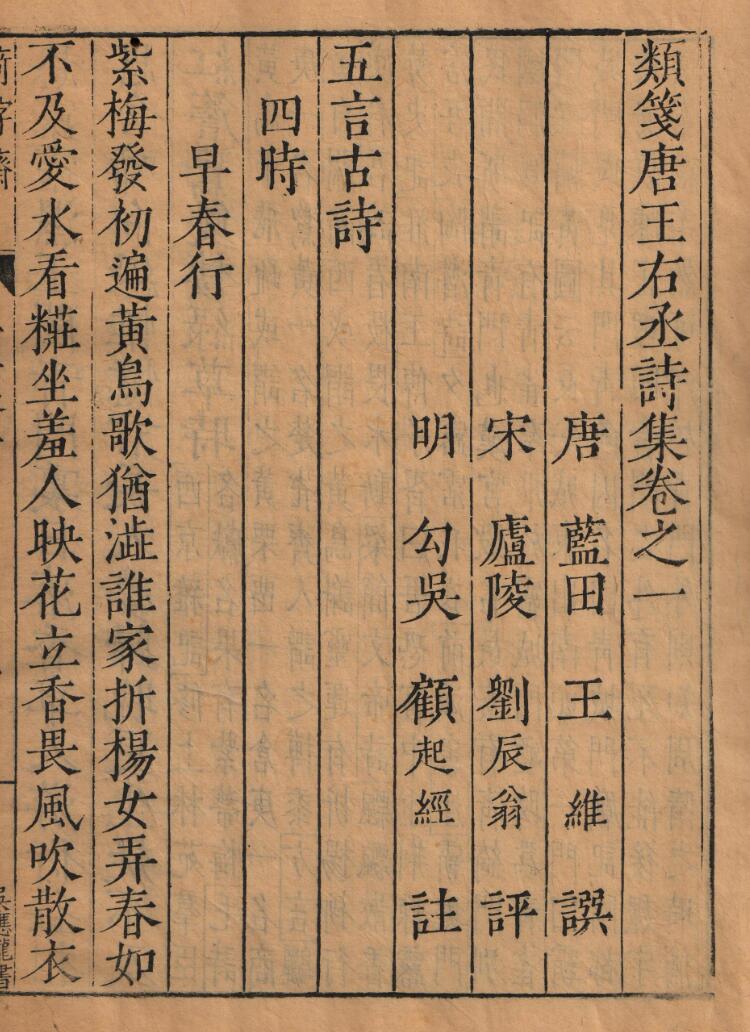 類箋唐王右丞詩集卷之一
唐 藍田 王維 譔
宋 廬陵 劉辰翁 評
明 勾吳 顧起經 註
五言古詩
四時
早春行
紫梅發初遍黃鳥歌猶澁誰家折楊女弄春如
不及愛水看糚坐羞人映花立香畏風吹散衣